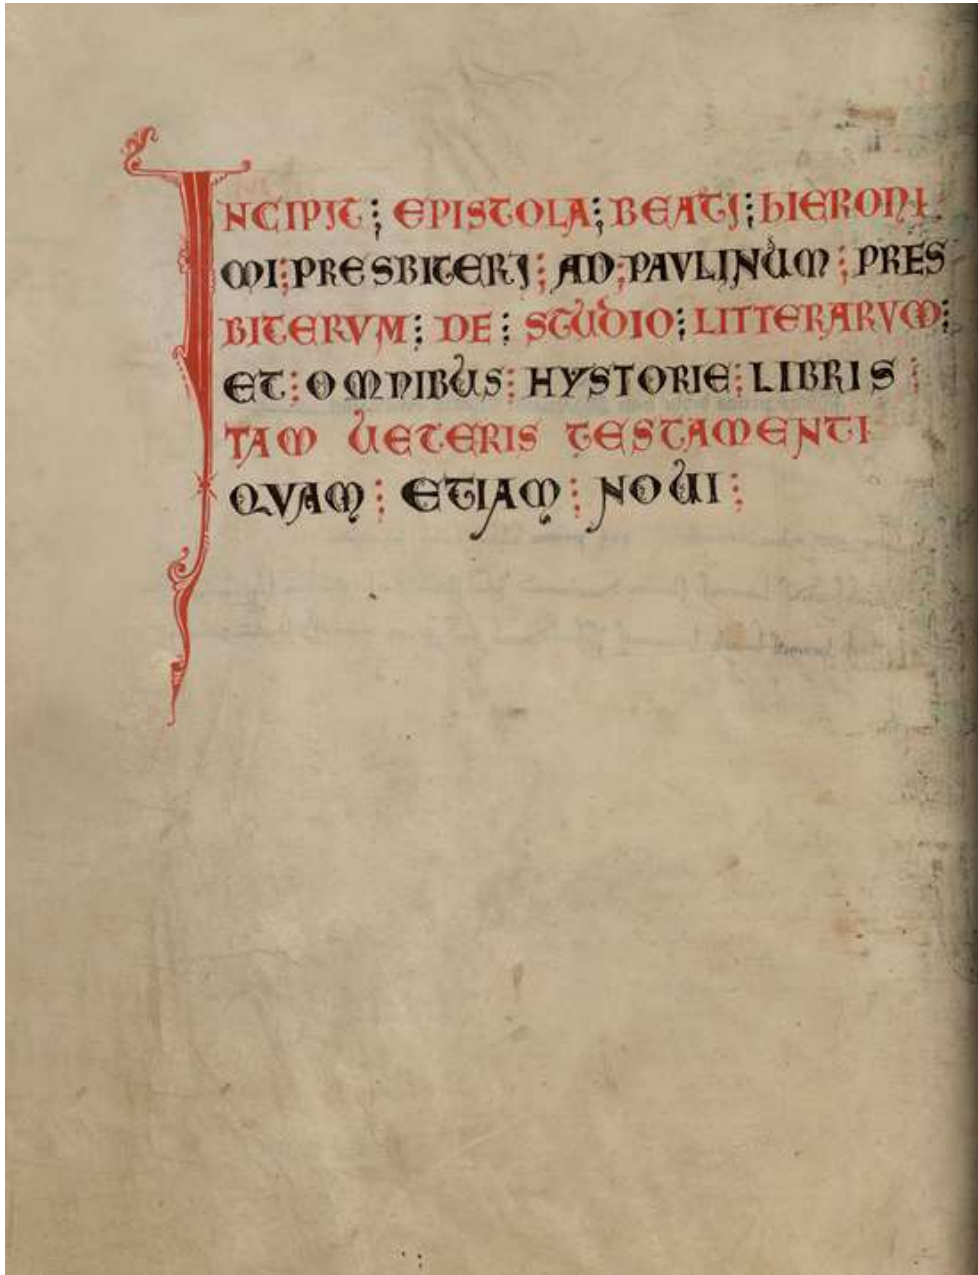 INCIPIT ; EPISTOLA ; BEATI ; HIERONI
MI : PRESBITERI : AD : PAVLINUM : PRES
BITERVM : DE : STUDIO : LITTERARVM :
ET : OMNIBUS : HYSTORIE : LIBRIS :
TAM UETERIS TESTAMENTI
QVAM : ETIAM : NOUI :